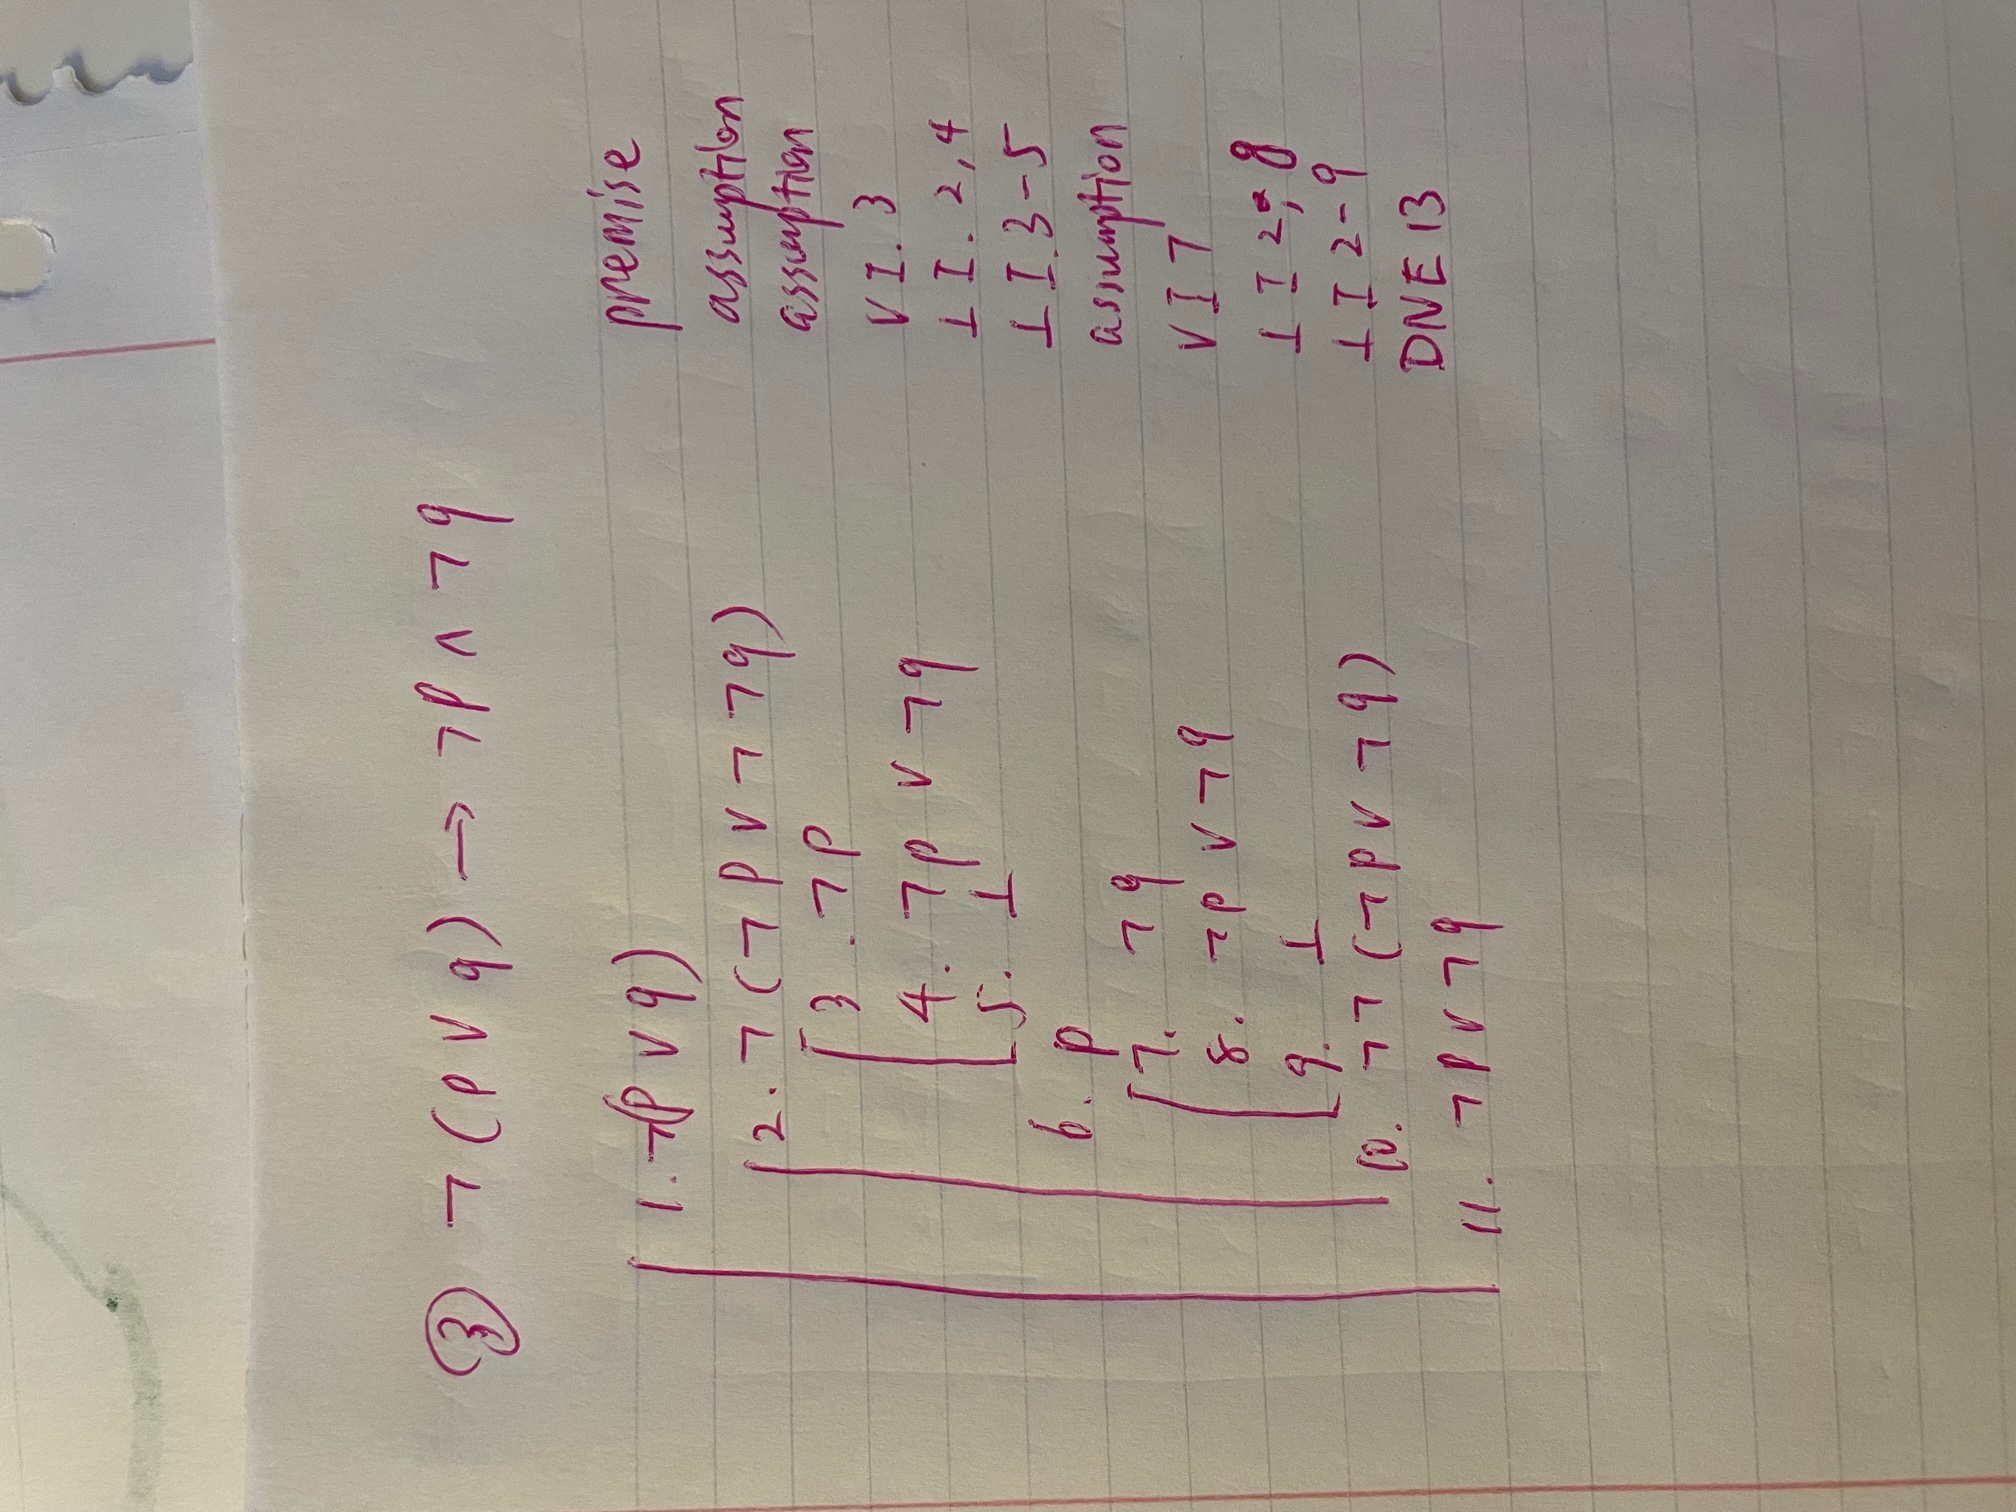 ③ ¬(p ∨ q) → ¬p ∧ ¬q
1. ¬(p ∨ q) premise
2. ¬(¬p ∨ ¬¬q) assumption
3. ¬p assumption
4. ¬p ∨ ¬q ∨I. 3
5. ⊥ ⊥I. 2,4
6. p ⊥I. 3-5
7. ¬q assumption
8. ¬p ∨ ¬q ∨I 7
9. ⊥ ⊥I 2, 8
10. ¬¬(¬p ∨ ¬q) ⊥I 2-9
11. ¬p ∨ ¬q DNE 13